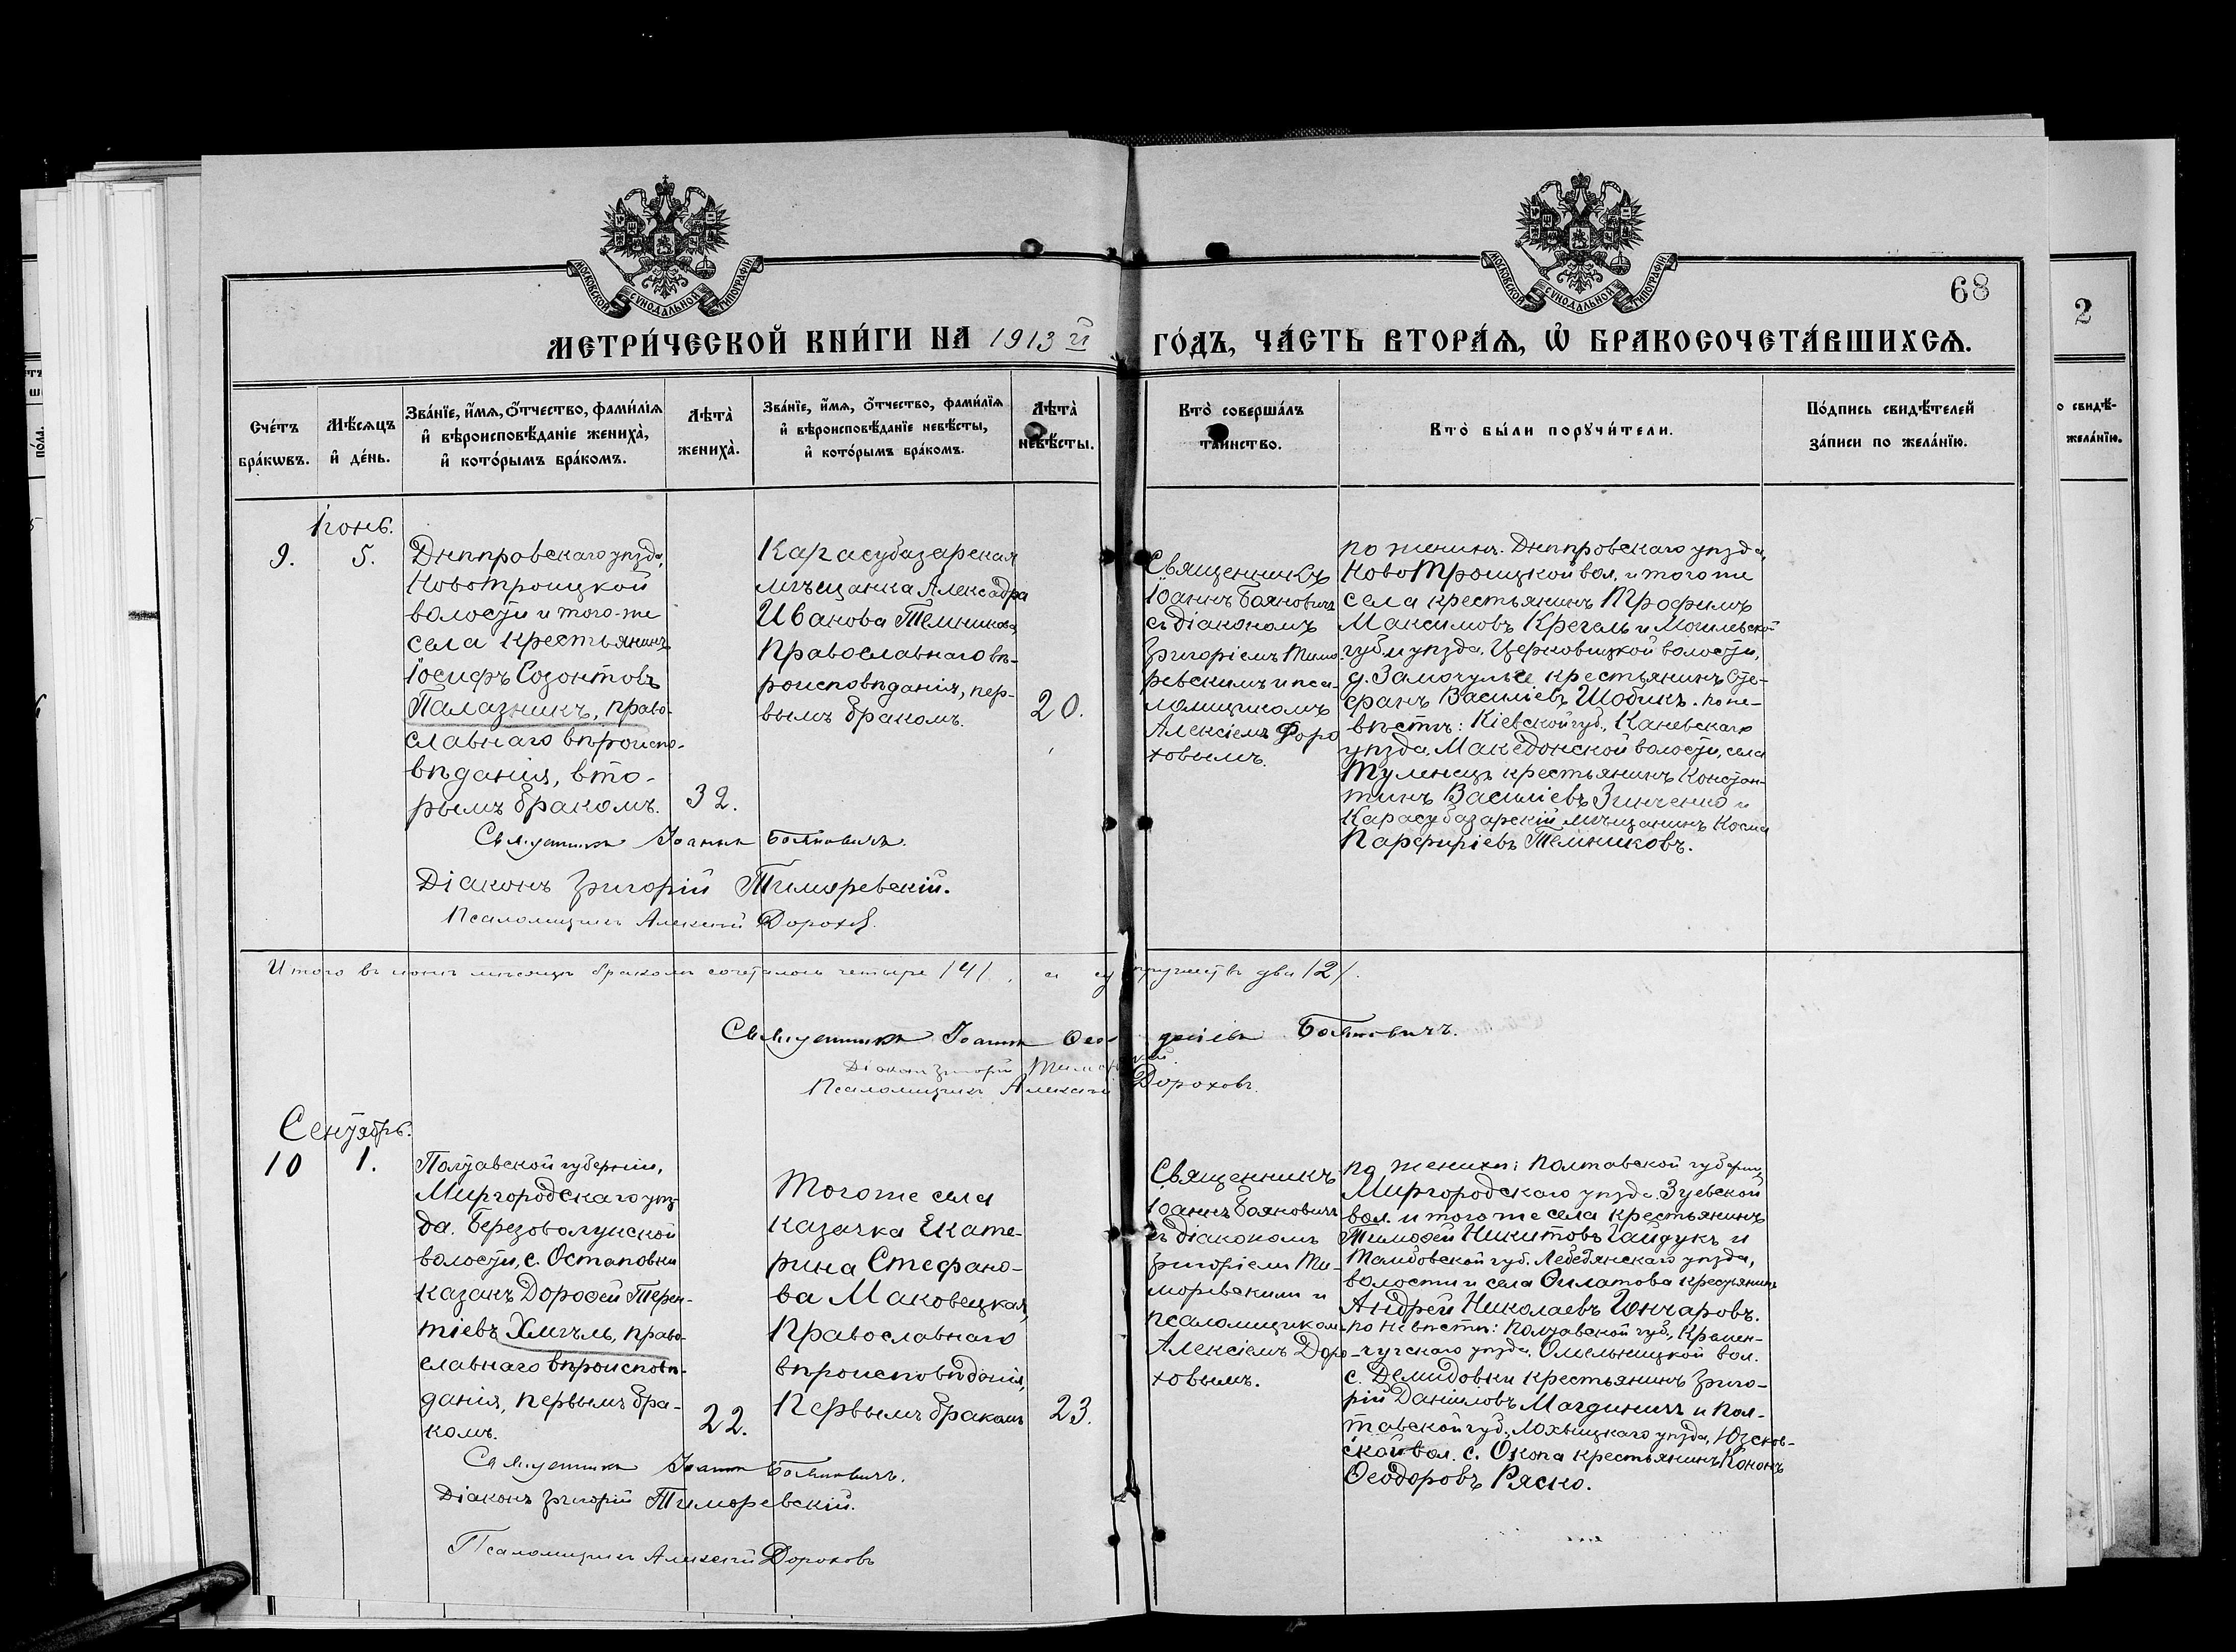 МОСКОВСКОЙ СѴНОДАЛЬНОЙ ТИПОГРАФІИ
МОСКОВСКОЙ СѴНОДАЛЬНОЙ ТИПОГРАФІИ
68
2
МЕТРИ́ЧЕСКОЙ КНИ́ГИ НА 1913й ГО́ДЪ, ЧА́СТЬ ВТОРА́Ѧ, Ѡ҆ БРАКОСОЧЕТА́ВШИХСѦ.
Сче́тъ
бра́кѡвъ.
Мѣ́сѧцъ
и҆ де́нь.
Зва́нїе, и҆́мѧ, ѻ҆́тчество, фами́лїѧ
и҆ вѣроисповѣ́данїе жениха̀,
и҆ кото́рымъ бра́комъ.
Лѣта̀
жениха̀.
Зва́нїе, и҆́мѧ, ѻ҆́тчество, фами́лїѧ
и҆ вѣроисповѣ́данїе невѣ́сты,
и҆ кото́рымъ бра́комъ.
Лѣта̀
невѣ́сты.
Кто̀ соверша́лъ
та́инство.
Кто̀ бы́ли порꙋчи́тели.
По́дпись свидѣ́телей
за́писи по жела́нїю.
Іюнь.
9.
5.
Днѣпровскаго уѣзда,
Новотроицкой
волости и того-же
села крестьянинъ
Іосифъ Созонтовъ
Палазникъ, право-
славнаго вѣроиспо-
вѣданія, вто-
рымъ бракомъ.
32.
Карасубазарская
мѣщанка Алексадра
Иванова Темникова,
православнаго вѣ-
роисповѣданія, пер-
вымъ бракомъ.
20.
Священникъ
Іоаннъ Баяновичъ
съ діакономъ
Григоріемъ Тимо-
ревскимъ и пса-
ломщикомъ
Алексіемъ Доро
ховымъ.
по женихѣ: Днѣпровскаго уѣзда,
Новотроицкой вол. и того же
села крестьянинъ Трофимъ
Максимовъ Крегель и Могилевской
губ. и уѣзда, Церковицкой волости,
д. Замочулье крестьянинъ Сте-
фанъ Василіевъ Шобикъ. по не-
вѣстѣ: Кіевской губ., Каневскаго
уѣзда, Македонской волости, села
Тулинецъ крестьянинъ Констан-
тинъ Василіевъ Зинченко и
Карасубазарскій мѣщанинъ Косма
Парфиріевъ Темниковъ.
Священникъ Іоаннъ Баяновичъ.
Діаконъ Григорій Тиморевскій.
Псаломщикъ Алексій Дороховъ.
Итого въ іюнѣ мѣсяцѣ бракомъ сочеталось четыре /4/, а супружествъ два /2/.
Священникъ Іоаннъ Баяновичъ.
Діаконъ Григорій
Псаломщикъ Алексій Дороховъ.
Сентябрь.
10
1.
Полтавской губерніи,
Миргородскаго уѣз
да. Березоволукской
волости, с. Остаповки
казакъ Дороѳей Терен-
тіевъ Хмѣль, право-
славнаго вѣроисповѣ-
данія, первымъ бра-
комъ.
22.
Того же села
казачка Екате-
рина Стефано-
ва Маковецкая,
православнаго
вѣроисповѣданія,
первымъ бракомъ
23.
Священникъ
Іоаннъ Баяновичъ
съ діакономъ
Григоріемъ Ти-
моревскимъ и
псаломщикомъ
Алексіемъ Доро-
ховымъ.
по женихѣ: Полтавской губерніи,
Миргородскаго уѣзда, Зуевской
вол. и того же села крестьянинъ
Тимоѳей Никитовъ Гайдукъ и
Тамбовской губ. Лебедянскаго уѣзда,
волости и села Филатова крестьянинъ
Андрей Николаевъ Гончаровъ.
по невѣстѣ: Полтавской губ., Кремен-
чугскаго уѣзда, Омельницкой вол.
с. Демидовки крестьянинъ Григо-
рій Даніиловъ Магдиничъ и Пол-
тавской губ., Лохвицкаго уѣзда, Юсков-
ской вол. с. Окопа крестьянинъ Кононъ
Ѳеодоровъ Ряско.
Священникъ Іоаннъ Баяновичъ.
Діаконъ Григорій Тиморевскій.
Псаломщикъ Алексій Дороховъ